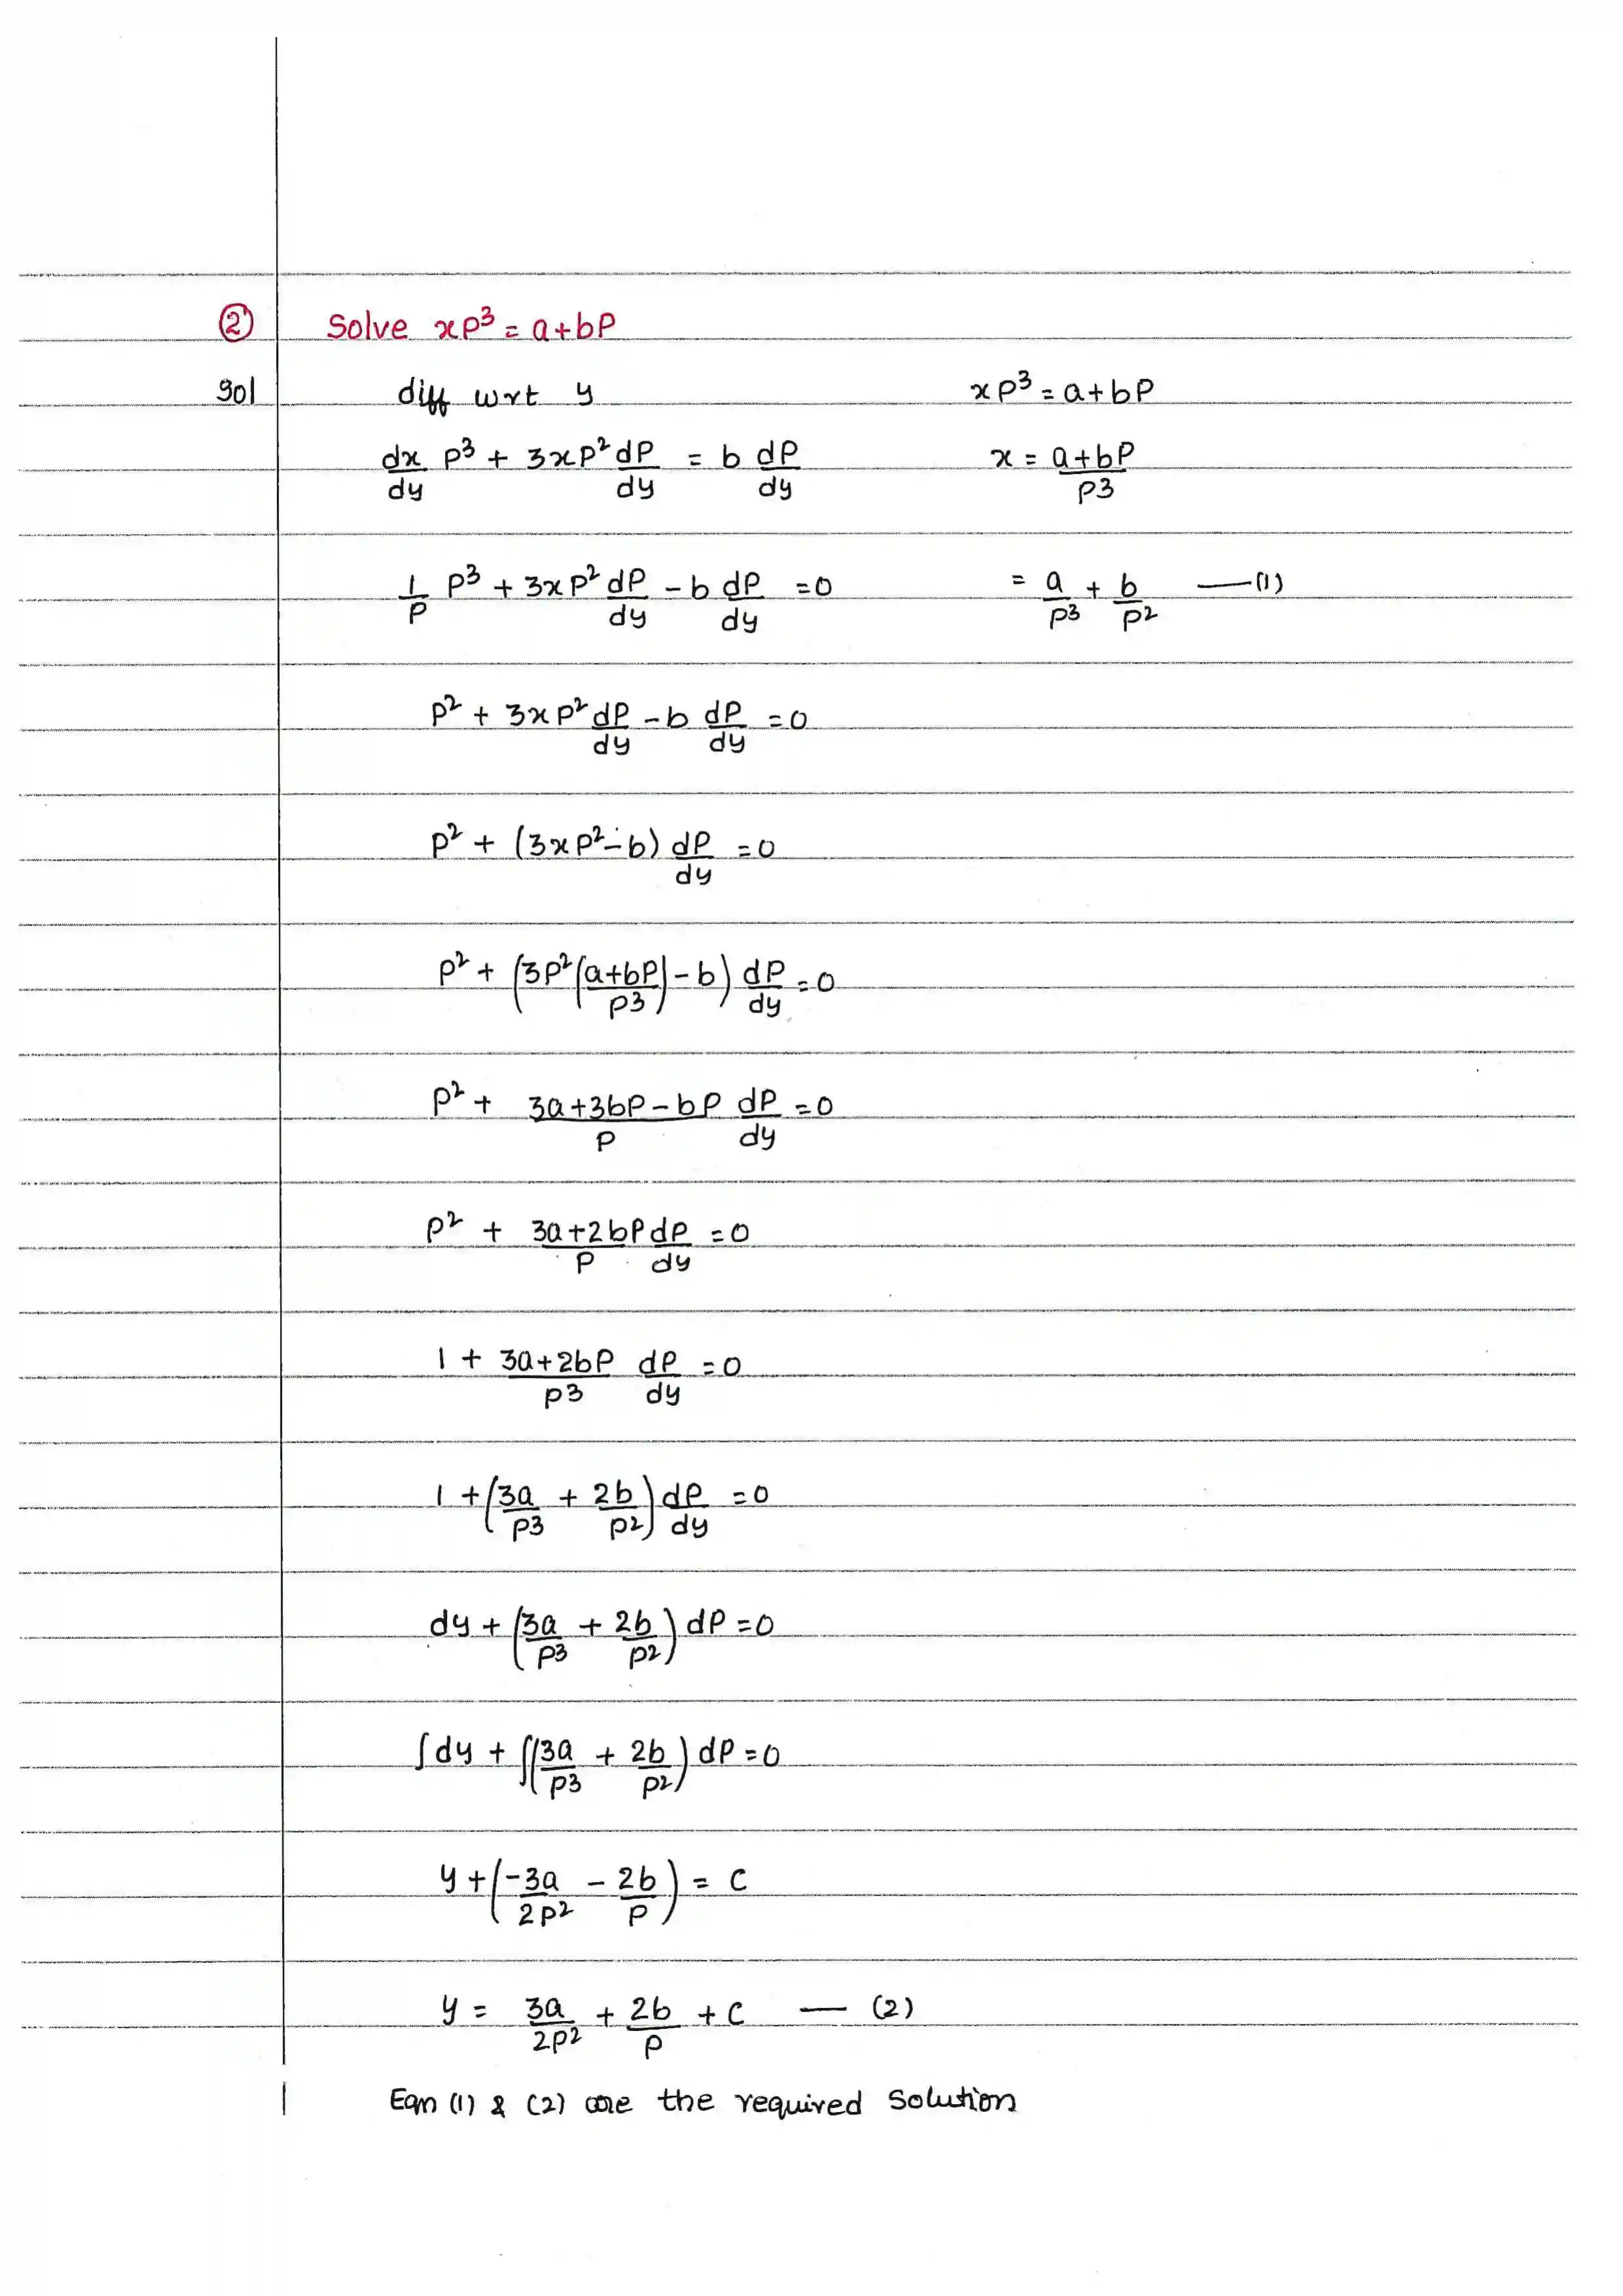 ② Solve xp³ = a+bP
Sol diff wrt y xp³ = a+bP
dx/dy p³ + 3xp² dP/dy = b dP/dy x = (a+bP)/p3
1/P p³ + 3xp² dP/dy - b dP/dy = 0 = a/p3 + b/p² —(1)
p² + 3xp² dP/dy - b dP/dy = 0
p² + (3xp² - b) dP/dy = 0
p² + (3p² ((a+bP)/p3) - b) dP/dy = 0
p² + (3a+3bP-bP)/P dP/dy = 0
p² + (3a+2bP)/P dP/dy = 0
1 + (3a+2bP)/p3 dP/dy = 0
1 + (3a/p3 + 2b/p²) dP/dy = 0
dy + (3a/p3 + 2b/p²) dP = 0
∫dy + ∫(3a/p3 + 2b/p²) dP = 0
y + (-3a/2p² - 2b/P) = C
y = 3a/2p² + 2b/P + C — (2)
Eqn (1) & (2) are the required Solution